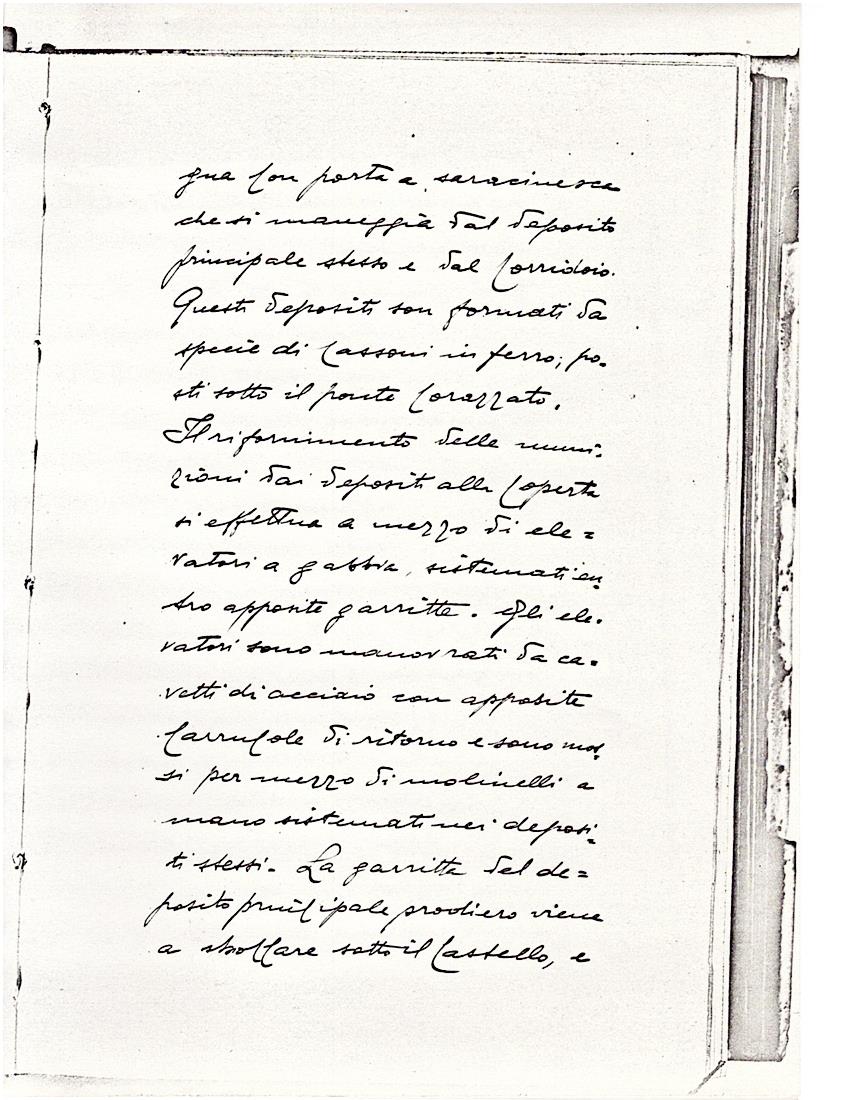 gua con porta a saracinesca
che si maneggia dal deposito
principale stesso e dal corridoio.
Questi depositi son formati da
specie di cassoni in ferro; po-
sti sotto il ponte corazzato.
Il rifornimento delle muni-
zioni dai depositi alla coperta
si effettua a mezzo di ele=
vatori a gabbia, sistemati en-
tro apposite garritte. Gli ele-
vatori sono manovrati da ca-
vetti di acciaio con apposite
carrucole di ritorno e sono mos-
si per mezzo di molinelli a
mano sistemati nei deposi-
ti stessi. La garritta del de=
posito principale prodiero viene
a sboccare sotto il castello, e